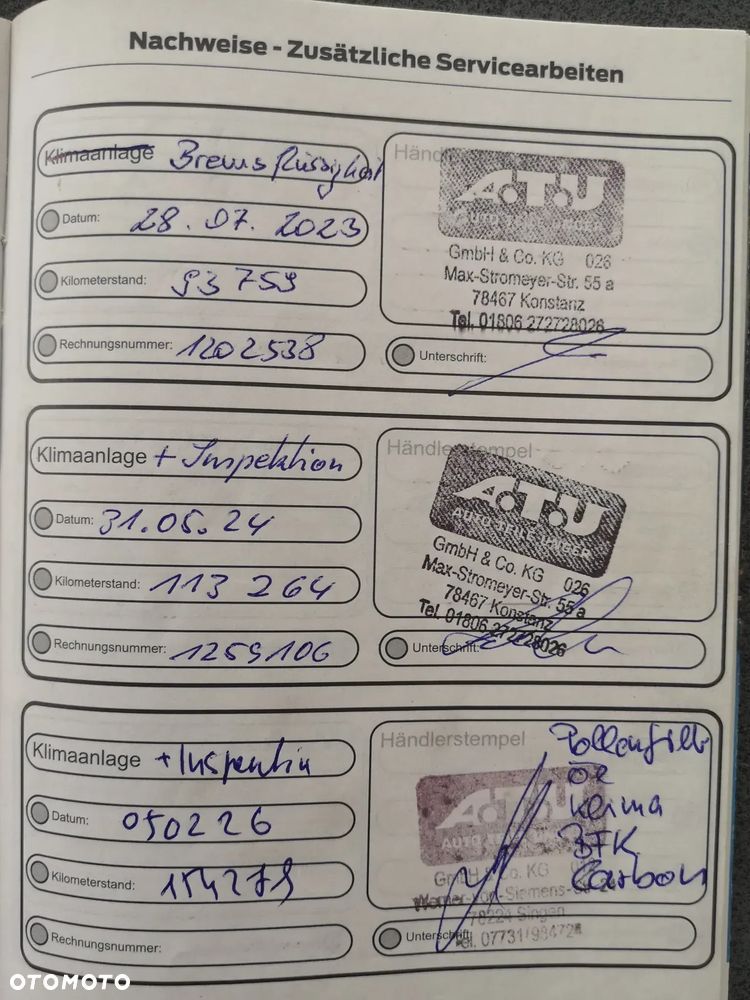 Nachweise - Zusätzliche Servicearbeiten
Klimaanlage Bremsflüssigkeit
Datum: 28.07.2023
Kilometerstand: 93 759
Rechnungsnummer: 1202538
A.T.U
GmbH & Co. KG 026
Max-Stromeyer-Str. 55 a
78467 Konstanz
Tel. 01806 272728026
Unterschrift:
Klimaanlage + Inspektion
Datum: 31.05.24
Kilometerstand: 113 264
Rechnungsnummer: 1259106
Händlerstempel
A.T.U
AUTO-TEILE-UNGER
GmbH & Co. KG 026
Max-Stromeyer-Str. 55 a
78467 Konstanz
Tel. 01806 272728026
Unterschrift:
Klimaanlage + Inspektin
Datum: 050226
Kilometerstand: 154279
Rechnungsnummer:
Händlerstempel
Pollenfilt
öl
klima
BFK
Carbon
A.T.U
AUTO
GmbH & Co. KG
Werner-von-Siemens-Str
78224 Singen
Tel. 07731/98472
Unterschrift:
OTOMOTO